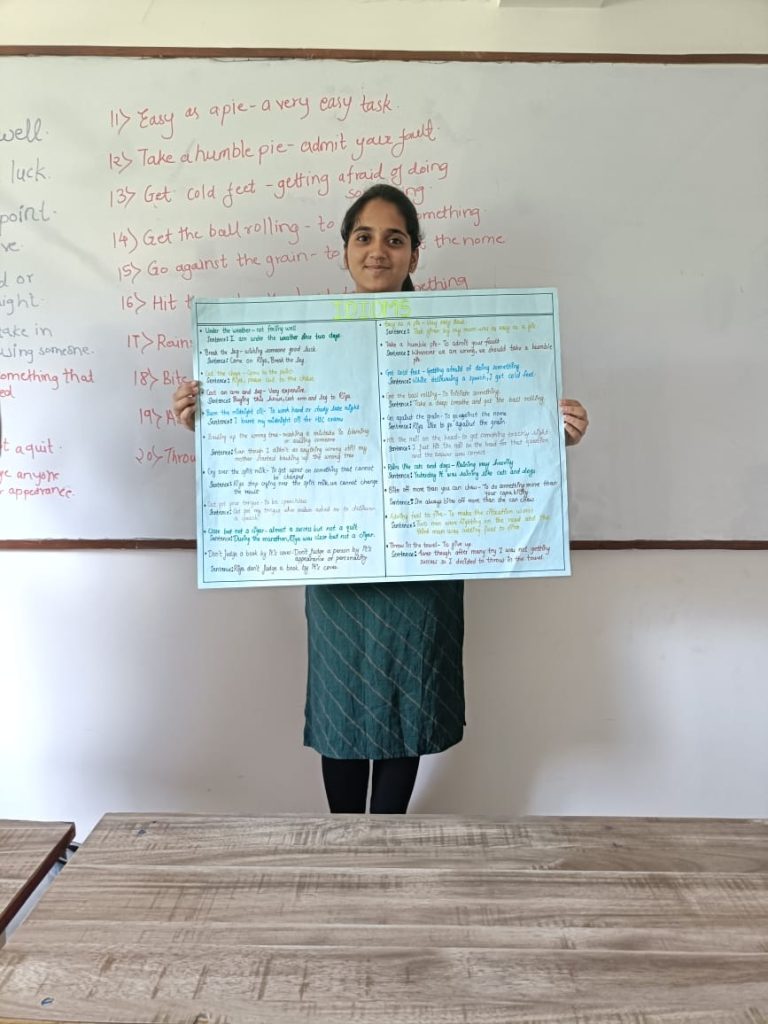 well.
luck.
point.
ve.
d or
night.
take in
using someone.
something that
ed
t a quit.
ge anyone
r appearance.
11> Easy as a pie - a very easy task.
12> Take a humble pie - admit your fault.
13> Get cold feet - getting afraid of doing
so ng
14) Get the ball rolling - to omething
15> Go against the grain - to t the nome
16> Hit t omething
17> Rains
18> Bite
19> A
20> Throu
IDIOMS
• Under the weather - not feeling well
Sentence: I am under the weather since two days.
• Break the leg - wishing someone good luck
Sentence: Come on Riya, Break the leg
Sentence: Riya, please cut to the chase
• Cost an arm and leg - Very expensive
Sentence: Buying this cost arm and leg to Riya.
• Burn the midnight oil - To work hard or study late night
Sentence: I burn my midnight oil for HSC exams
• Barking up the wrong tree - making a mistake in blaming
or suing someone
Sentence: Even though I didn't do anything wrong still my
mother started barking up the wrong tree
• Cry over the split milk - To get upset on something that cannot
be changed
Sentence: Riya stop crying over the split milk, we cannot change
the result
• Cat got your tongue - To be speechless
Sentence: Cat got my tongue when asked me to deliver
a speech
• Close but not a cigar - almost a success but not a quit
Sentence: During the marathon, Riya was close but not a cigar.
• Don't judge a book by it's cover - Don't judge a person by it's
appearance or personality
Sentence: Riya don't judge a book by it's cover.
• Easy as a pie - Very easy task
Sentence: Task given by my mum was as easy as a pie.
• Take a humble pie - To admit your fault
Sentence: Whenever we are wrong, we should take a humble
pie
• Get cold feet - Getting afraid of doing something
Sentence: While delivering a speech, I got cold feet.
• Get the ball rolling - To initiate something
Sentence: Take a deep breathe and get the ball rolling.
• Go against the grain - To go against the nome
Sentence: Riya like to go against the grain
• Hit the nail on the head - to get something exactly right
Sentence: I just hit the nail on the head for that question
and the answer was correct
• Rain the cats and dogs - Raining very heavily
Sentence: Yesterday it was raining like cats and dogs
• Bite off more than you can chew - To do something more than
your capability
Sentence: She always bite off more than she can chew
• Adding fuel to fire - To make the situation worse
Sentence: Two men were fighting on the road and the
third man was adding fuel to fire
• Throw in the towel - To give up
Sentence: Even though after many try I was not getting
success so I decided to throw in the towel.